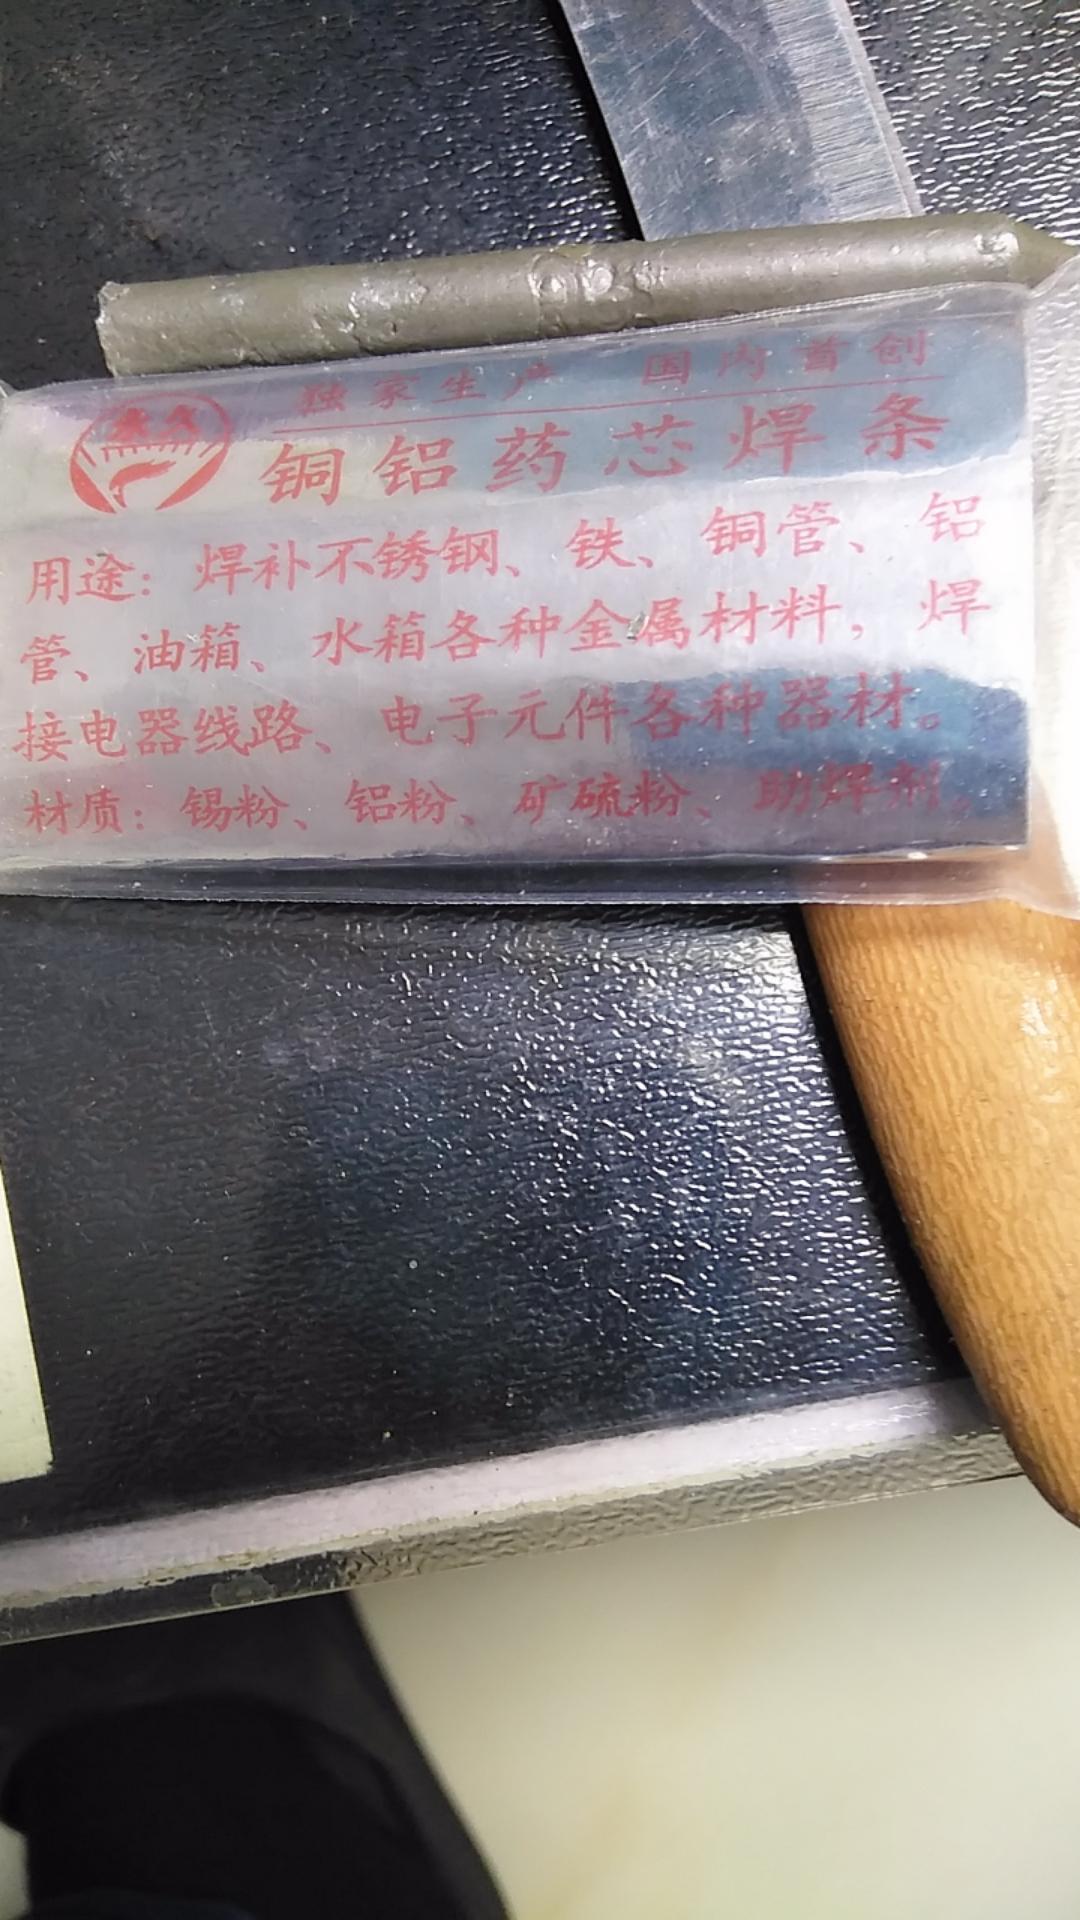 独家生产 国内首创
铜铝药芯焊条
用途：焊补不锈钢、铁、铜管、铝
管、油箱、水箱各种金属材料，焊
接电器线路、电子元件各种器材。
材质：锡粉、铝粉、矿硫粉、助焊剂。